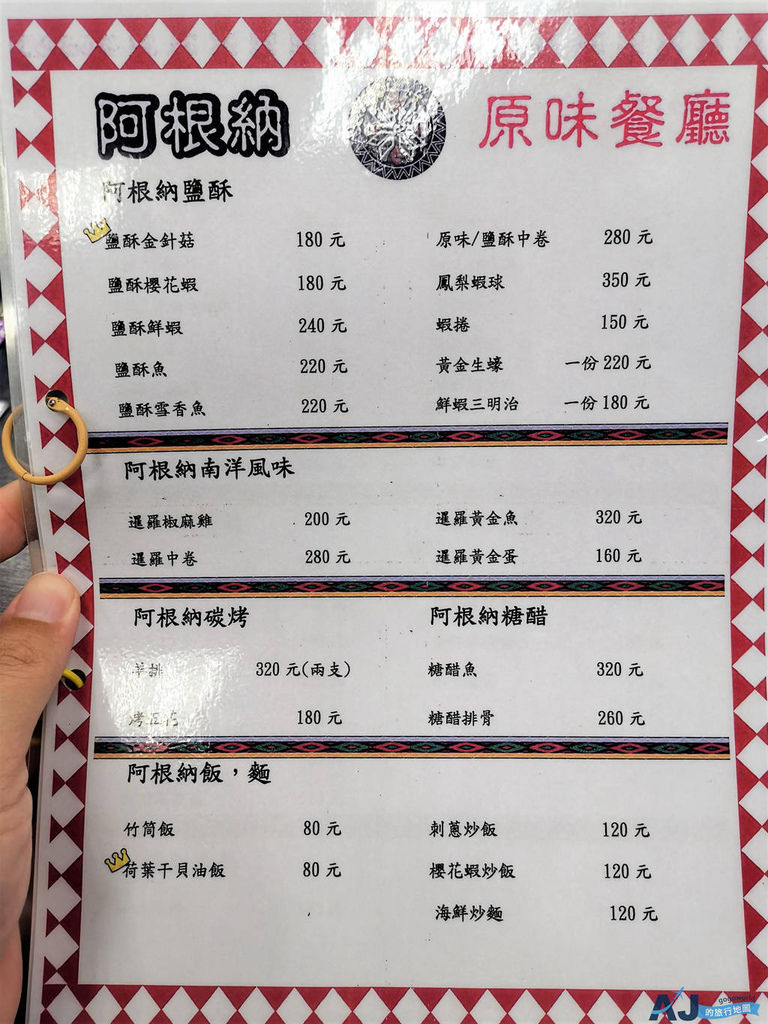 阿根納 原味餐廳
阿根納鹽酥
鹽酥金針菇 180 元 原味/鹽酥中卷 280 元
鹽酥櫻花蝦 180 元 鳳梨蝦球 350 元
鹽酥鮮蝦 240 元 蝦捲 150 元
鹽酥魚 220 元 黃金生蠔 一份 220 元
鹽酥雪香魚 220 元 鮮蝦三明治 一份 180 元
阿根納南洋風味
暹羅椒麻雞 200 元 暹羅黃金魚 320 元
暹羅中卷 280 元 暹羅黃金蛋 160 元
阿根納碳烤 阿根納糖醋
排 320 元(兩支) 糖醋魚 320 元
烤 180 元 糖醋排骨 260 元
阿根納飯，麵
竹筒飯 80 元 刺蔥炒飯 120 元
荷葉干貝油飯 80 元 櫻花蝦炒飯 120 元
海鮮炒麵 120 元
AJ gogoworld
的旅行地圖